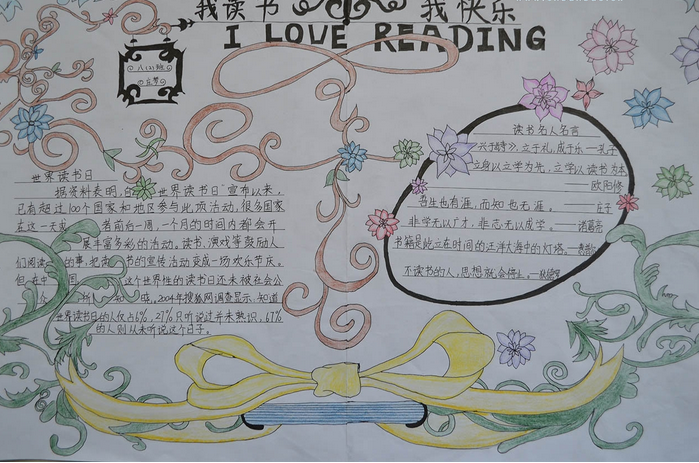 我读书 我快乐
I LOVE READING
八(2)班
读书名人名言
立于礼,成于乐 —孔子
立身以立学为先,立学以读书为本
——欧阳修
吾生也有涯,而知也无涯。
非学无以广才,非志无以成学。—诸葛亮
书籍是屹立在时间的汪洋大海中的灯塔。
不读书的人,思想就会停止。
世界读书日
据资料表明,自 世界读书日"宣布以来,
已有超过100个国家和地区参与此项活动,很多国家
在这一天或 者前后一周、一个月的时间内都会开
展丰富多彩的活动。读书、演戏等鼓励人
们阅读 的事,把 书的宣传活动变成一场欢乐节庆。
但在中国 这个世界性的读书日还未被社会公
2004年搜狐网调查显示,知道
世界读书日的人仅占6%,27%只听说过并未熟识,67%
的人则从未听说这个日子。